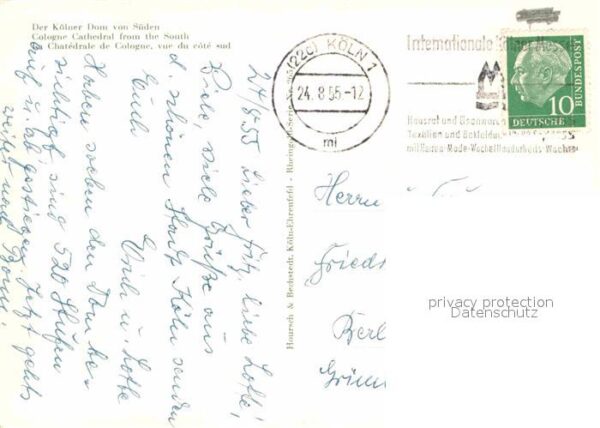 Der Kölner Dom von Süden
Cologne Cathedral from the South
La Chatédrale de Cologne, vue du côté sud
24/8 55 Lieber Fritz, liebe Lotte!
Viele viele Grüße aus
d. schönen Stadt Köln senden
Euch
Erich u. Lotte
Haben soeben den Dom be-
sichtigt sind 520 Stufen
auf u. abgestiegen. Jetzt gehts
weiter nach Bonn.
Hoursch & Bechstedt, Köln-Ehrenfeld - Rheingold-Serie Nr.
(22c) KÖLN 1
24.8.55.-12
mi
Internationale Kölner Messe
Hausrat und Eisenwaren
Textilien und Bekleidung
mit Herren-Mode-Woche
10
DEUTSCHE
BUNDESPOST
Herrn
Fried
Berl
privacy protection
Datenschutz